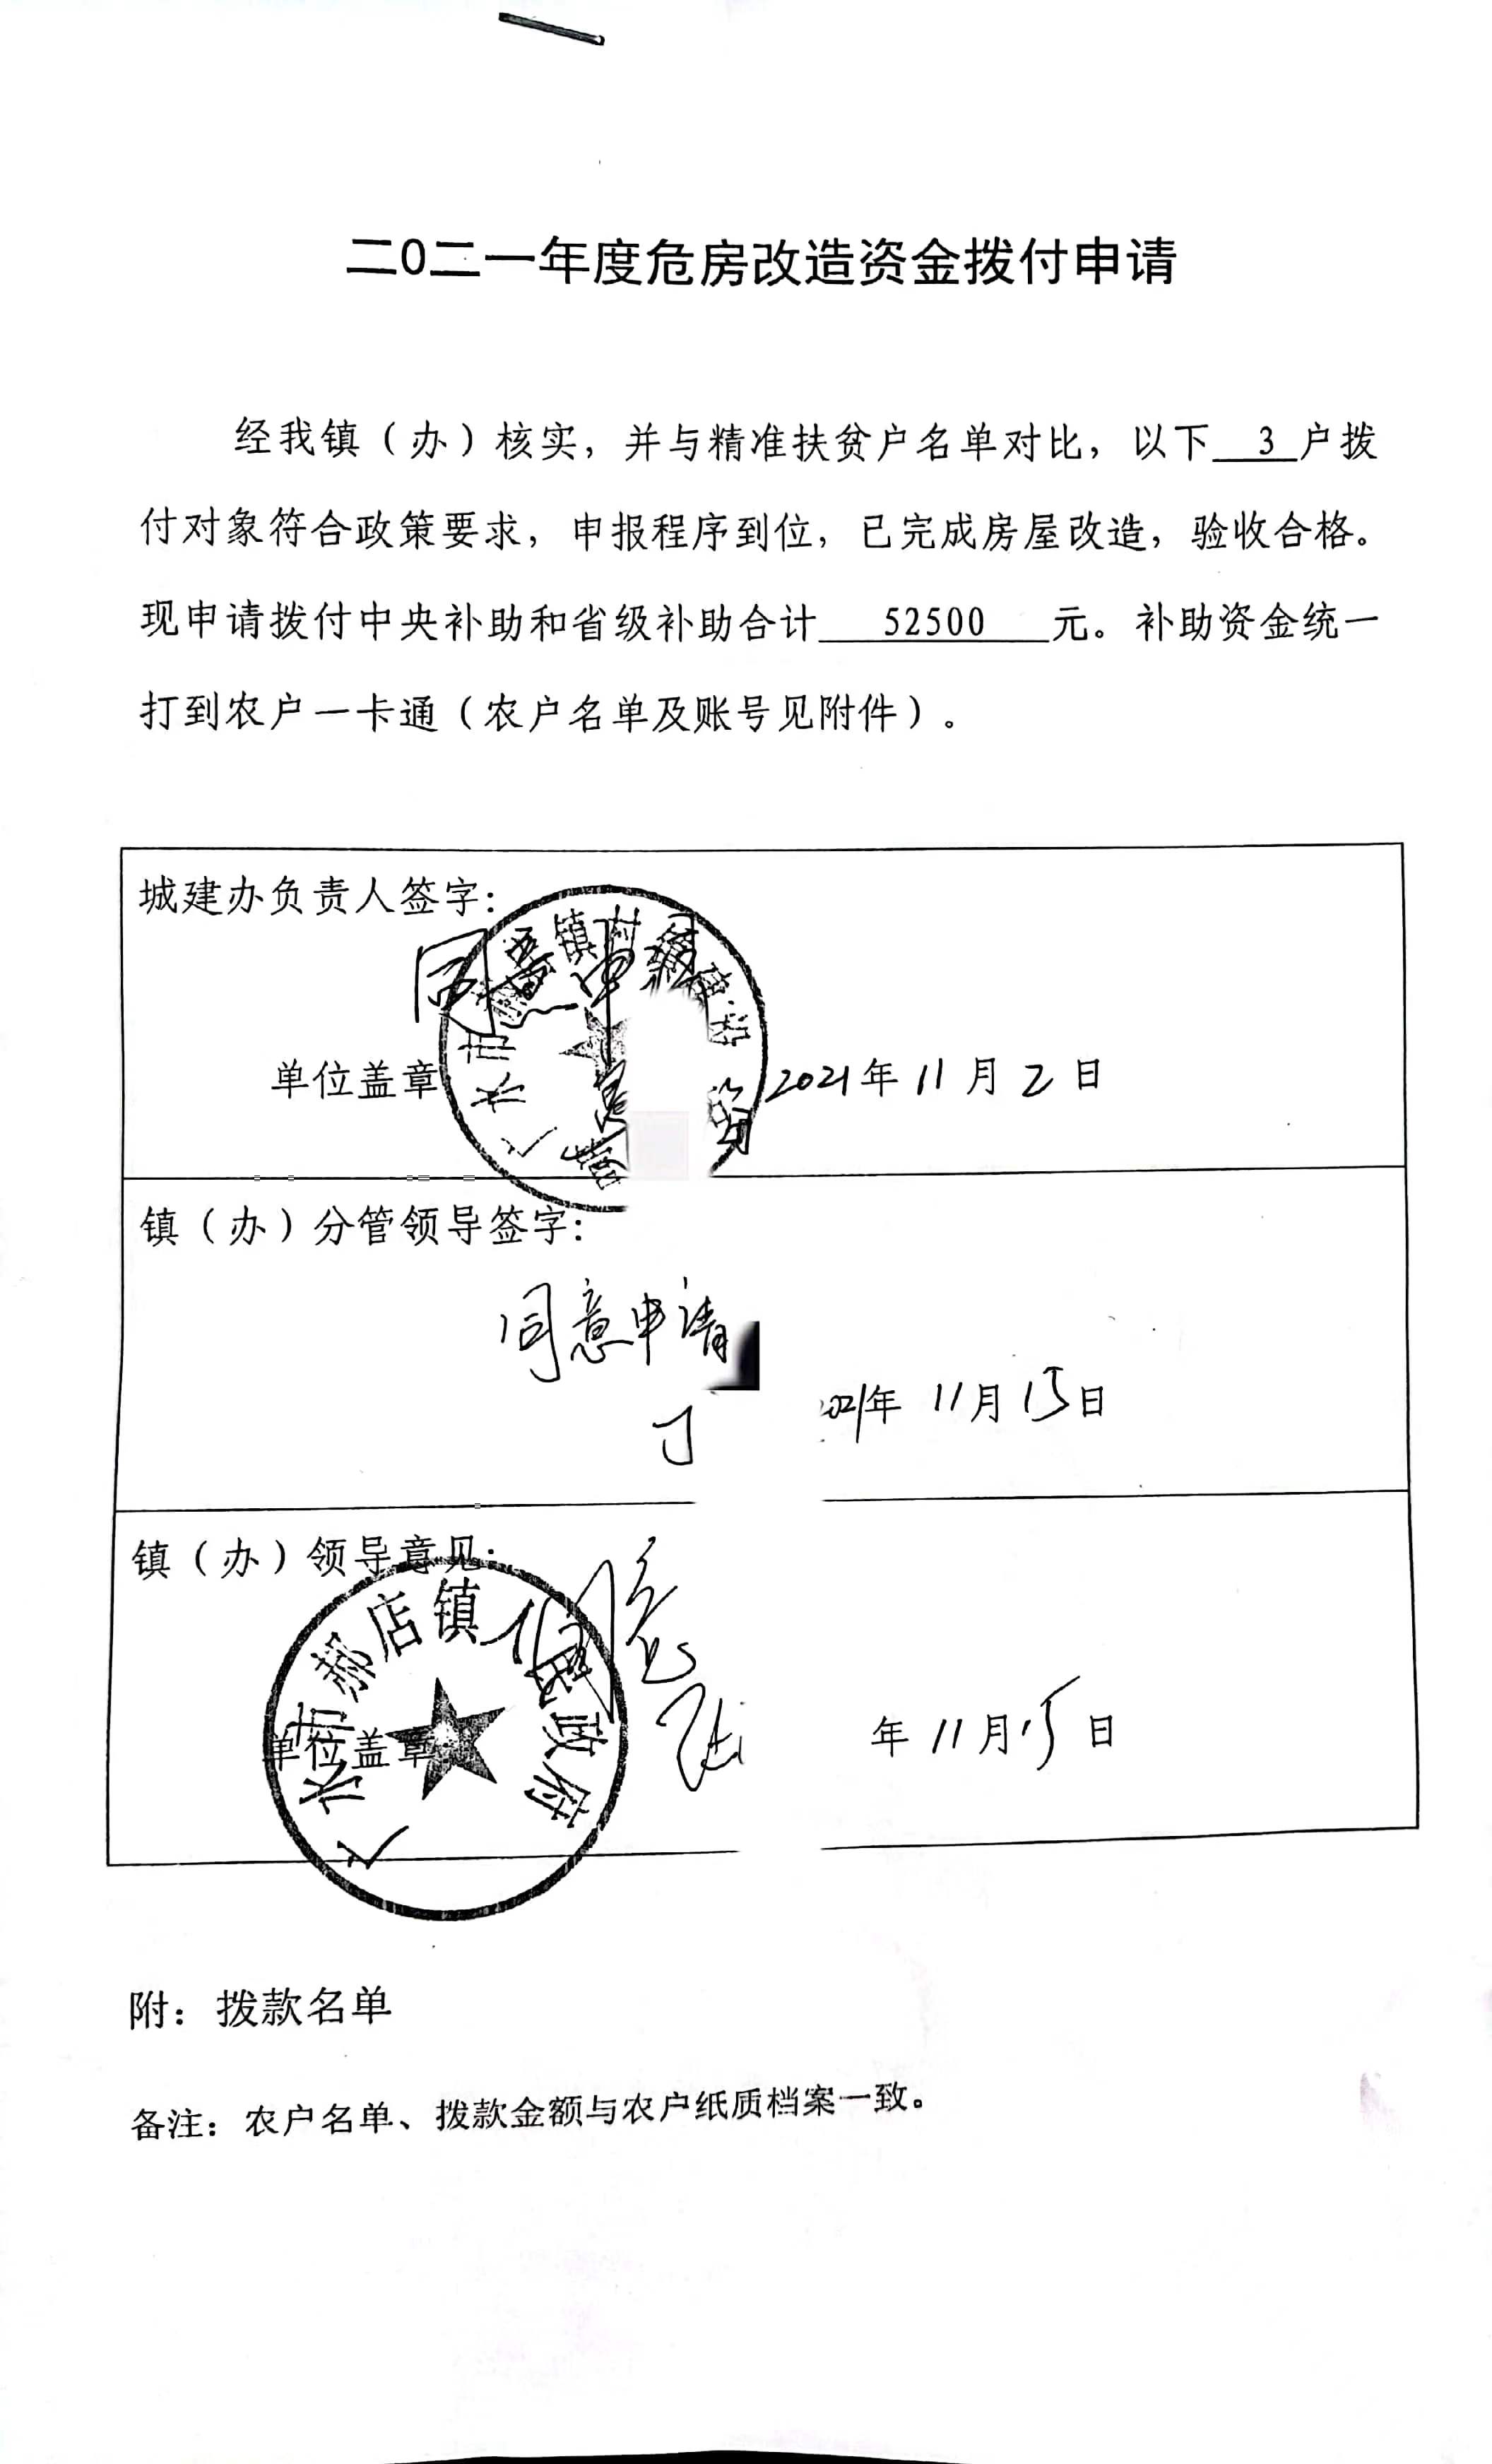 二0二一年度危房改造资金拨付申请
经我镇（办）核实，并与精准扶贫户名单对比，以下 3 户拨
付对象符合政策要求，申报程序到位，已完成房屋改造，验收合格。
现申请拨付中央补助和省级补助合计 52500 元。补助资金统一
打到农户一卡通（农户名单及账号见附件）。
城建办负责人签字：
同意申请
单位盖章 2021年11月2日
镇（办）分管领导签字：
同意申请
2021年11月15日
镇（办）领导意见：
市郝店镇人民政府
同意
单位盖章 年11月15日
附：拨款名单
备注：农户名单、拨款金额与农户纸质档案一致。